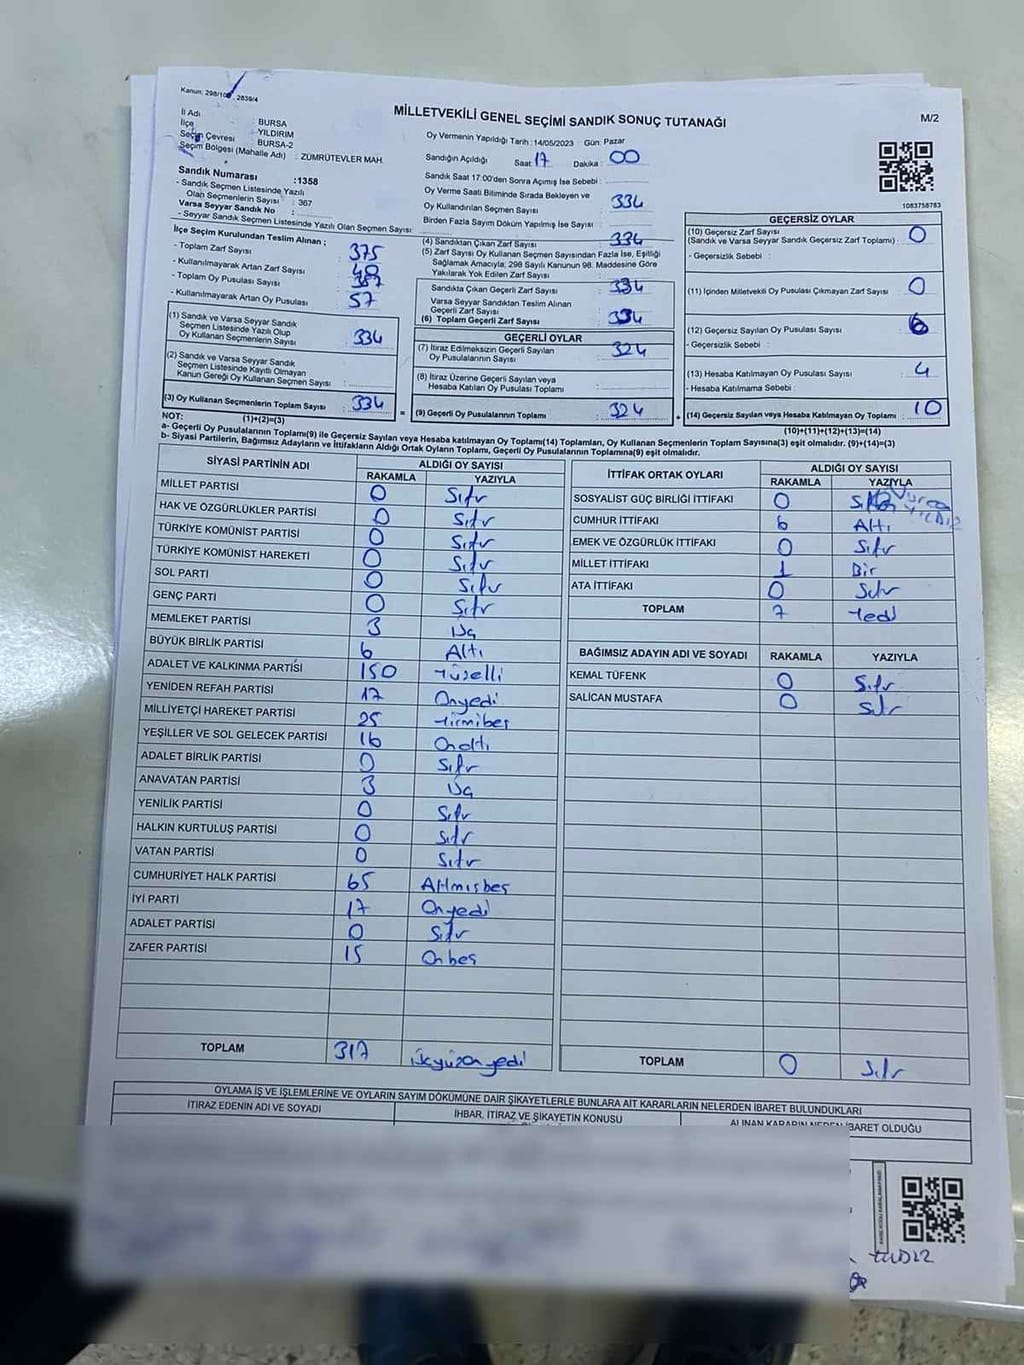 Kanun: 298/10 , 2839/4
MİLLETVEKİLİ GENEL SEÇİMİ SANDIK SONUÇ TUTANAĞI
M/2
İl Adı : BURSA
İlçe : YILDIRIM
Seçim Çevresi : BURSA-2
Seçim Bölgesi (Mahalle Adı) : ZÜMRÜTEVLER MAH.
Sandık Numarası :1358
- Sandık Seçmen Listesinde Yazılı
Olan Seçmenlerin Sayısı : 367
Varsa Seyyar Sandık No :
- Seyyar Sandık Seçmen Listesinde Yazılı Olan Seçmen Sayısı:
Oy Vermenin Yapıldığı Tarih :14/05/2023 Gün: Pazar
Sandığın Açıldığı Saat : 17 Dakika : 00
Sandık Saat 17:00'den Sonra Açılmış İse Sebebi :
Oy Verme Saati Bitiminde Sırada Bekleyen ve
Oy Kullandırılan Seçmen Sayısı : 334
Birden Fazla Sayım Döküm Yapılmış İse Sayısı :
1083758783
İlçe Seçim Kurulundan Teslim Alınan ;
- Toplam Zarf Sayısı : 375
- Kullanılmayarak Artan Zarf Sayısı :
- Toplam Oy Pusulası Sayısı :
- Kullanılmayarak Artan Oy Pusulası : 57
(1) Sandık ve Varsa Seyyar Sandık
Seçmen Listesinde Yazılı Olup
Oy Kullanan Seçmenlerin Sayısı : 334
(2) Sandık ve Varsa Seyyar Sandık
Seçmen Listesinde Kayıtlı Olmayan
Kanun Gereği Oy Kullanan Seçmen Sayısı :
(3) Oy Kullanan Seçmenlerin Toplam Sayısı : 334
(1)+(2)=(3)
(4) Sandıktan Çıkan Zarf Sayısı : 334
(5) Zarf Sayısı Oy Kullanan Seçmen Sayısından Fazla İse, Eşitliği
Sağlamak Amacıyla; 298 Sayılı Kanunun 98. Maddesine Göre
Yakılarak Yok Edilen Zarf Sayısı :
Sandıkta Çıkan Geçerli Zarf Sayısı : 334
Varsa Seyyar Sandıktan Teslim Alınan
Geçerli Zarf Sayısı :
(6) Toplam Geçerli Zarf Sayısı : 334
GEÇERLİ OYLAR
(7) İtiraz Edilmeksizin Geçerli Sayılan
Oy Pusulalarının Sayısı : 324
(8) İtiraz Üzerine Geçerli Sayılan veya
Hesaba Katılan Oy Pusulası Toplamı :
= (9) Geçerli Oy Pusulalarının Toplamı : 324 +
GEÇERSİZ OYLAR
(10) Geçersiz Zarf Sayısı
(Sandık ve Varsa Seyyar Sandık Geçersiz Zarf Toplamı) : 0
- Geçersizlik Sebebi :
(11) İçinden Milletvekili Oy Pusulası Çıkmayan Zarf Sayısı : 0
(12) Geçersiz Sayılan Oy Pusulası Sayısı : 6
- Geçersizlik Sebebi :
(13) Hesaba Katılmayan Oy Pusulası Sayısı : 4
- Hesaba Katılmama Sebebi :
(14) Geçersiz Sayılan veya Hesaba Katılmayan Oy Toplamı : 10
(10)+(11)+(12)+(13)=(14)
NOT:
a- Geçerli Oy Pusulalarının Toplamı(9) ile Geçersiz Sayılan veya Hesaba katılmayan Oy Toplamı(14) Toplamları, Oy Kullanan Seçmenlerin Toplam Sayısına(3) eşit olmalıdır. (9)+(14)=(3)
b- Siyasi Partilerin, Bağımsız Adayların ve İttifakların Aldığı Ortak Oyların Toplamı, Geçerli Oy Pusulalarının Toplamına(9) eşit olmalıdır.
SİYASİ PARTİNİN ADI ALDIĞI OY SAYISI
RAKAMLA YAZIYLA
MİLLET PARTİSİ 0 Sıfır
HAK VE ÖZGÜRLÜKLER PARTİSİ 0 Sıfır
TÜRKİYE KOMÜNİST PARTİSİ 0 Sıfır
TÜRKİYE KOMÜNİST HAREKETİ 0 Sıfır
SOL PARTİ 0 Sıfır
GENÇ PARTİ 0 Sıfır
MEMLEKET PARTİSİ 3 Üç
BÜYÜK BİRLİK PARTİSİ 6 Altı
ADALET VE KALKINMA PARTİSİ 150 Yüzelli
YENİDEN REFAH PARTİSİ 17 Onyedi
MİLLİYETÇİ HAREKET PARTİSİ 25 Yirmibeş
YEŞİLLER VE SOL GELECEK PARTİSİ 16 Onaltı
ADALET BİRLİK PARTİSİ 0 Sıfır
ANAVATAN PARTİSİ 3 Üç
YENİLİK PARTİSİ 0 Sıfır
HALKIN KURTULUŞ PARTİSİ 0 Sıfır
VATAN PARTİSİ 0 Sıfır
CUMHURİYET HALK PARTİSİ 65 Altmışbeş
İYİ PARTİ 17 Onyedi
ADALET PARTİSİ 0 Sıfır
ZAFER PARTİSİ 15 Onbeş
TOPLAM 317 Üçyüzonyedi
İTTİFAK ORTAK OYLARI ALDIĞI OY SAYISI
RAKAMLA YAZIYLA
SOSYALİST GÜÇ BİRLİĞİ İTTİFAKI 0
CUMHUR İTTİFAKI 6 Altı
EMEK VE ÖZGÜRLÜK İTTİFAKI 0 Sıfır
MİLLET İTTİFAKI 1 Bir
ATA İTTİFAKI 0 Sıfır
TOPLAM 7 Yedi
BAĞIMSIZ ADAYIN ADI VE SOYADI RAKAMLA YAZIYLA
KEMAL TÜFENK 0 Sıfır
SALİCAN MUSTAFA 0 Sıfır
TOPLAM 0 Sıfır
OYLAMA İŞ VE İŞLEMLERİNE VE OYLARIN SAYIM DÖKÜMÜNE DAİR ŞİKAYETLERLE BUNLARA AİT KARARLARIN NELERDEN İBARET BULUNDUKLARI
İTİRAZ EDENİN ADI VE SOYADI İHBAR, İTİRAZ VE ŞİKAYETİN KONUSU ALINAN KARARIN NEDEN İBARET OLDUĞU